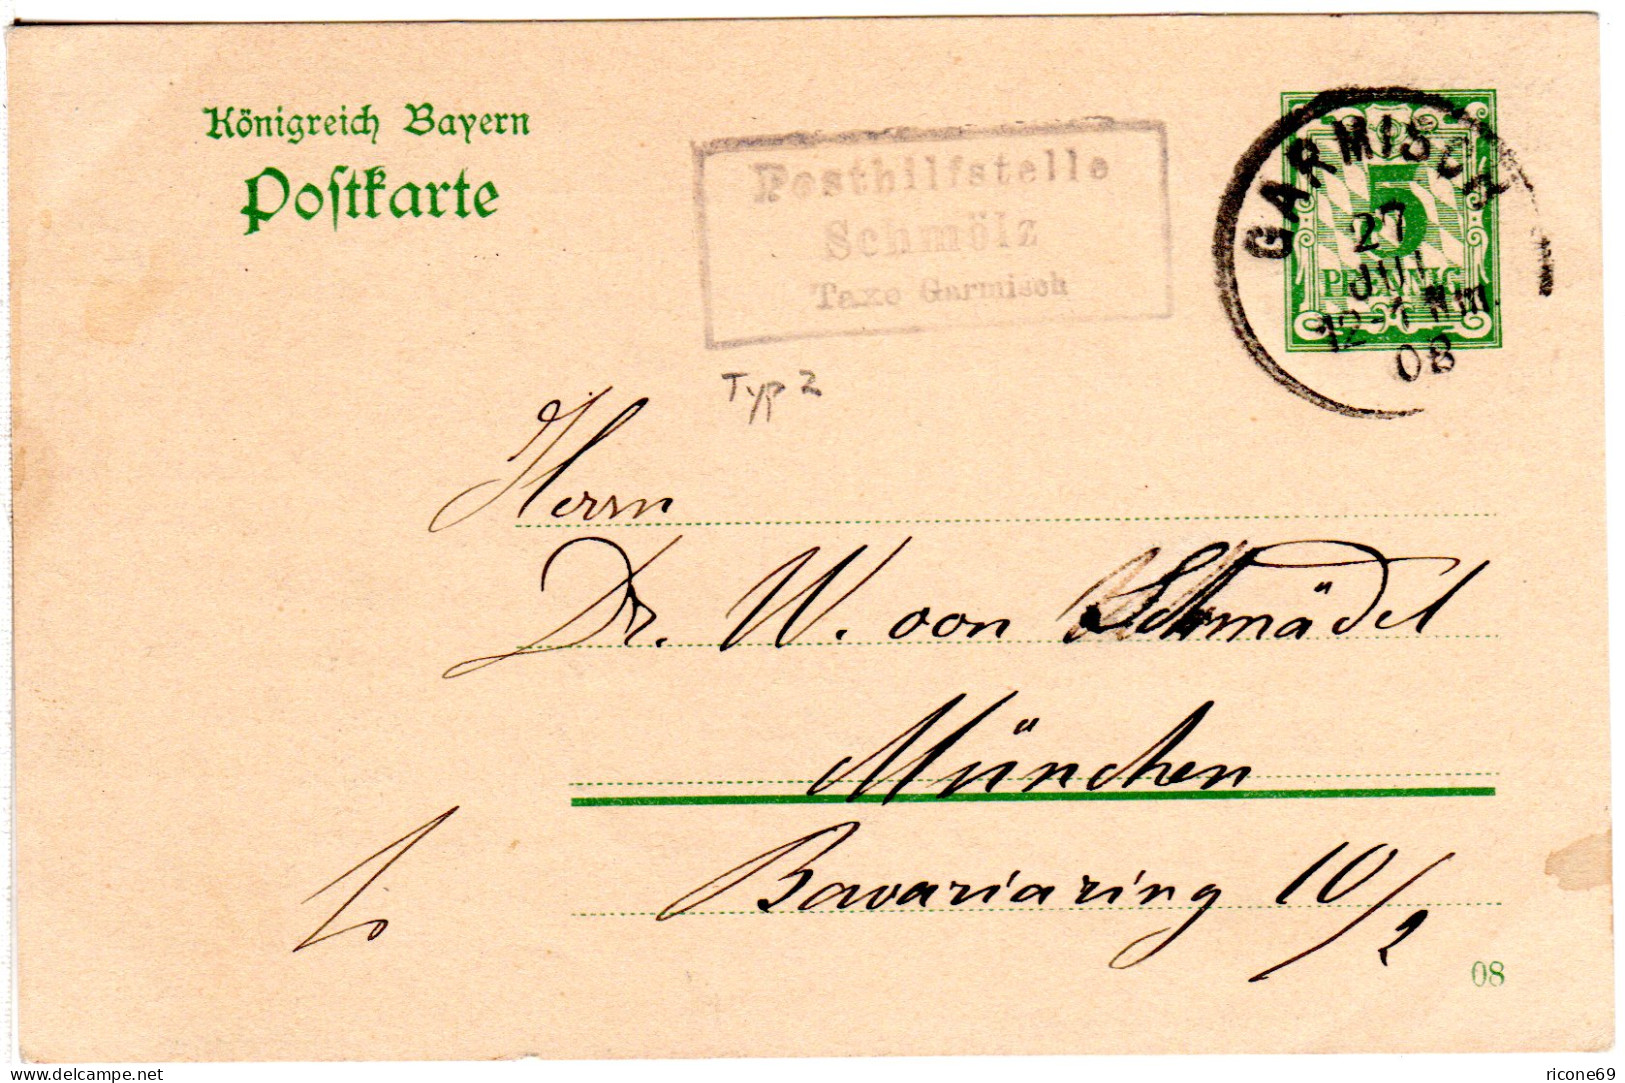 Königreich Bayern
Postkarte
Posthilfstelle
Schmölz
Taxe Garmisch
Typ 2
GARMISCH
27
JUL
12-1 Nm.
08
5
PFENNIG
Herrn
Dr. W. von Schmädel
München
Bavariaring 10/2
08
www.delcampe.net
ricone69